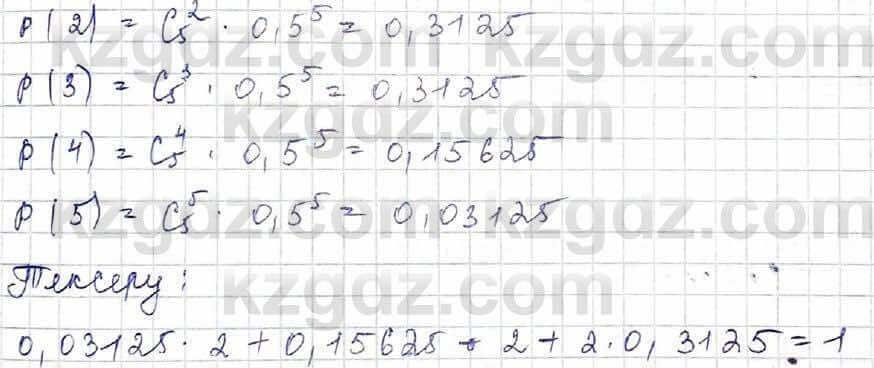 P(2) = C₅² · 0,5⁵ = 0,3125
P(3) = C₅³ · 0,5⁵ = 0,3125
P(4) = C₅⁴ · 0,5⁵ = 0,15625
P(5) = C₅⁵ · 0,5⁵ = 0,03125
Тексеру:
0,03125 · 2 + 0,15625 · 2 + 2 · 0,3125 = 1
kzgdz.com
kzgdz.com
kzgdz.com
kzgdz.com
kzgdz.com
kzgdz.com